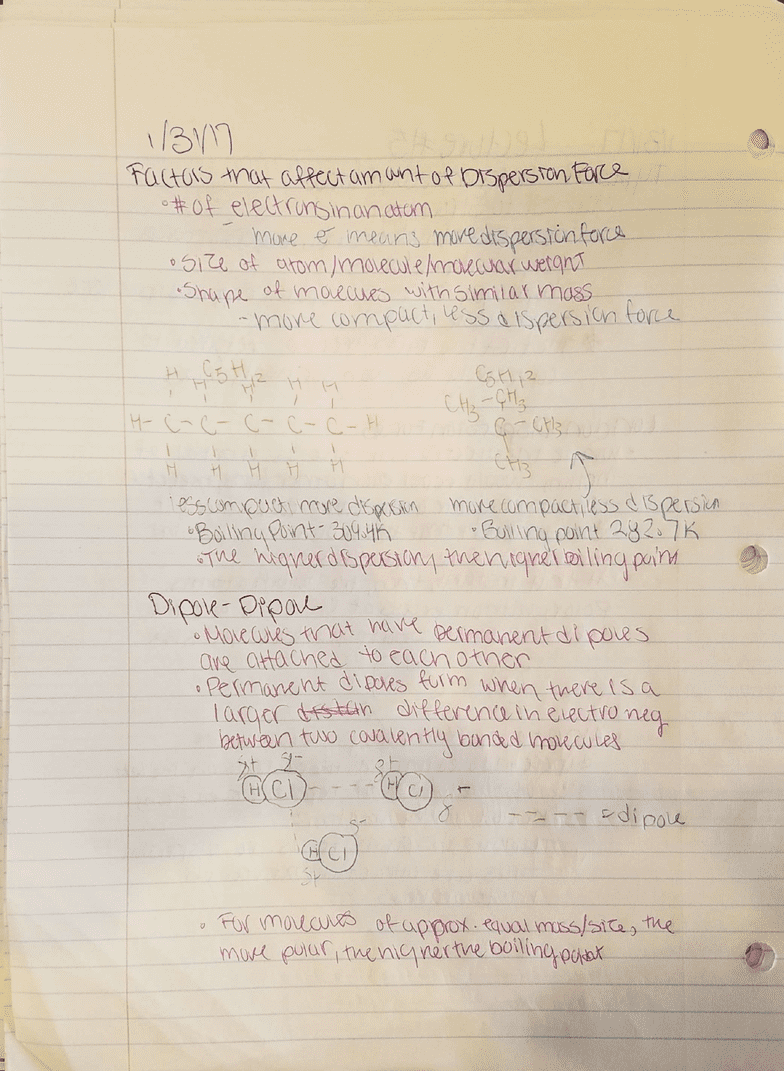 1/31/17
Factors that affect amount of Dispersion Force
• # of electrons in an atom
- more e⁻ means more dispersion force
• Size of atom/molecule/molecular weight
• Shape of molecules with similar mass
- more compact, less dispersion force
C5H12
H H H H H
H- C - C - C - C - C - H
H H H H H
C5H12
CH3 - CH3
C - CH3
CH3
less compact, more dispersion
more compact, less dispersion
• Boiling Point - 309.4K
• Boiling point 282.7K
• The higher dispersion, the higher boiling point
Dipole-Dipole
• Molecules that have permanent dipoles
are attached to each other
• Permanent dipoles form when there is a
larger distan difference in electroneg
between two covalently bonded molecules
δ+ δ- δ+
H Cl - - - - H Cl δ-
- - - - = dipole
δ-
H Cl
δ+
• For molecules of approx. equal mass/size, the
more polar, the higher the boiling point